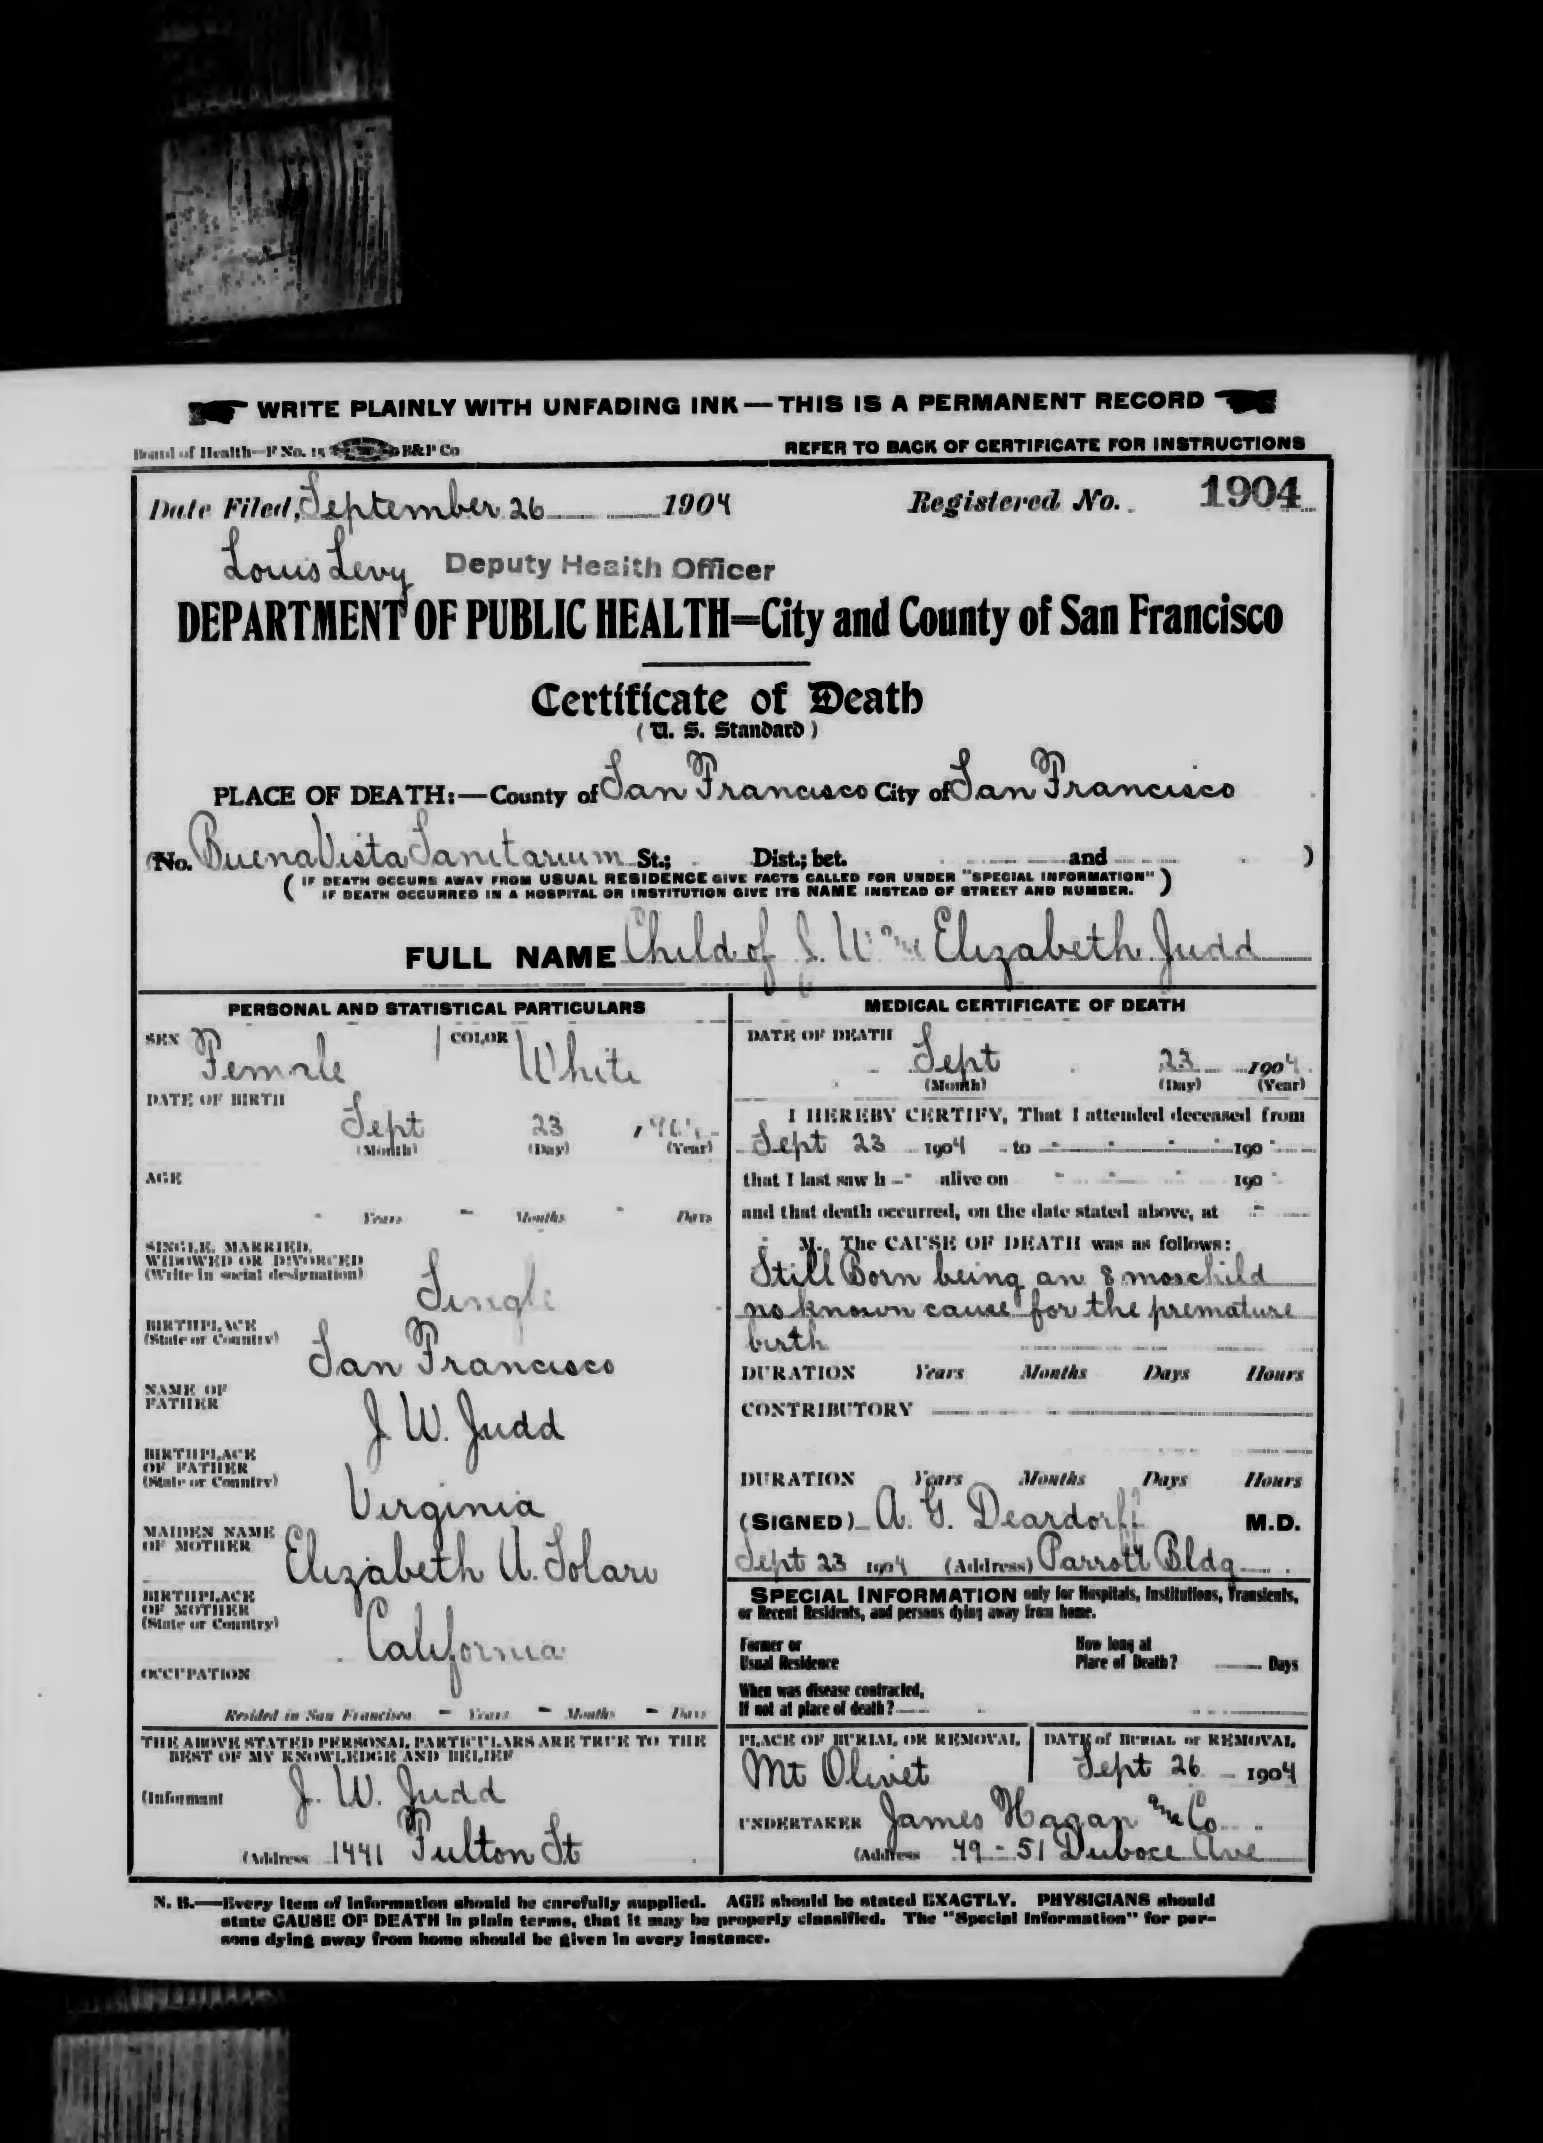 WRITE PLAINLY WITH UNFADING INK — THIS IS A PERMANENT RECORD
Board of Health—F No. 15 B&P Co REFER TO BACK OF CERTIFICATE FOR INSTRUCTIONS
Date Filed, September 26 1904 Registered No. 1904
Louis Levy Deputy Health Officer
DEPARTMENT OF PUBLIC HEALTH=City and County of San Francisco
Certificate of Death
(U. S. Standard)
PLACE OF DEATH:—County of San Francisco City of San Francisco
(No. Buena Vista Sanitarium St.; Dist.; bet. and )
(IF DEATH OCCURS AWAY FROM USUAL RESIDENCE GIVE FACTS CALLED FOR UNDER "SPECIAL INFORMATION"
IF DEATH OCCURRED IN A HOSPITAL OR INSTITUTION GIVE ITS NAME INSTEAD OF STREET AND NUMBER.)
FULL NAME Child of J. W. and Elizabeth Judd
PERSONAL AND STATISTICAL PARTICULARS
SEX Female COLOR White
DATE OF BIRTH
Sept 23
(Month) (Day) (Year)
AGE
Years Months Days
SINGLE, MARRIED,
WIDOWED OR DIVORCED
(Write in social designation)
Single
BIRTHPLACE
(State or Country)
San Francisco
NAME OF
FATHER
J. W. Judd
BIRTHPLACE
OF FATHER
(State or Country)
Virginia
MAIDEN NAME
OF MOTHER
Elizabeth A. Solari
BIRTHPLACE
OF MOTHER
(State or Country)
California
OCCUPATION
Resided in San Francisco - Years - Months - Days
THE ABOVE STATED PERSONAL PARTICULARS ARE TRUE TO THE
BEST OF MY KNOWLEDGE AND BELIEF
(Informant J. W. Judd
(Address 1441 Fulton St
MEDICAL CERTIFICATE OF DEATH
DATE OF DEATH
Sept 23 1904
(Month) (Day) (Year)
I HEREBY CERTIFY, That I attended deceased from
Sept 23 1904 to 190
that I last saw h - alive on 190
and that death occurred, on the date stated above, at
M. The CAUSE OF DEATH was as follows:
Still Born being an 8 mos child
no known cause for the premature
birth
DURATION Years Months Days Hours
CONTRIBUTORY
DURATION Years Months Days Hours
(SIGNED) A. G. Deardorff M.D.
Sept 23 1904 (Address) Parrott Bldg
SPECIAL INFORMATION only for Hospitals, Institutions, Transients,
or Recent Residents, and persons dying away from home.
Former or
Usual Residence
How long at
Place of Death? Days
When was disease contracted,
If not at place of death?
PLACE OF BURIAL OR REMOVAL
Mt Olivet
DATE of BURIAL or REMOVAL
Sept 26 1904
UNDERTAKER James Hagan and Co
(Address 49 - 51 Duboce Ave
N. B.—Every item of information should be carefully supplied. AGE should be stated EXACTLY. PHYSICIANS should
state CAUSE OF DEATH in plain terms, that it may be properly classified. The "Special Information" for per-
sons dying away from home should be given in every instance.